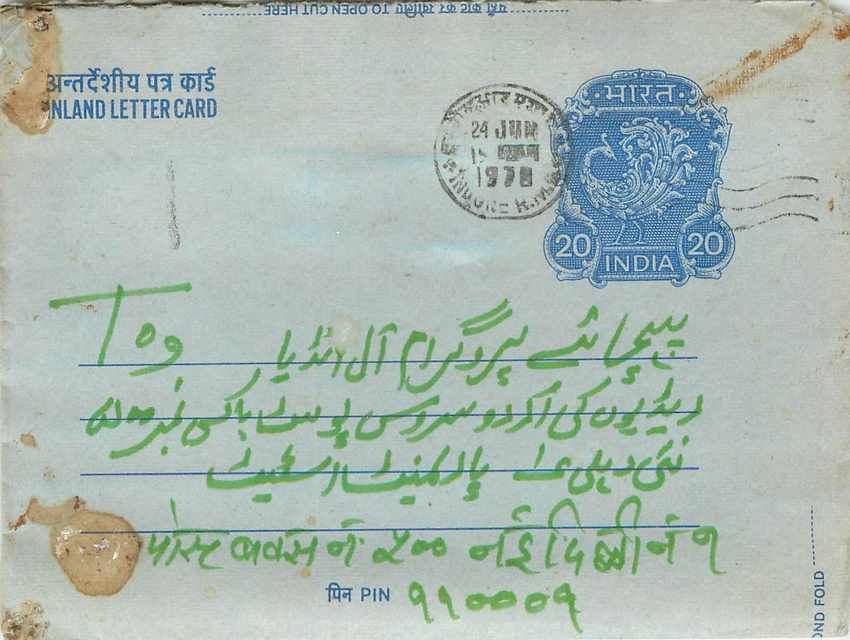 यहाँ काट कर खोलिए TO OPEN CUT HERE
अन्तर्देशीय पत्र कार्ड
INLAND LETTER CARD
24 JUN
1978
भारत
20 20
INDIA
To
پروگرام آل انڈیا
کی اردو سروس پوسٹ باکس نمبر ۵۰۰
نئی دہلی پارلمنٹ اسٹریٹ
पोस्ट बक्स नं ५०० नई दिल्ली नं १
पिन PIN ११०००१
OND FOLD